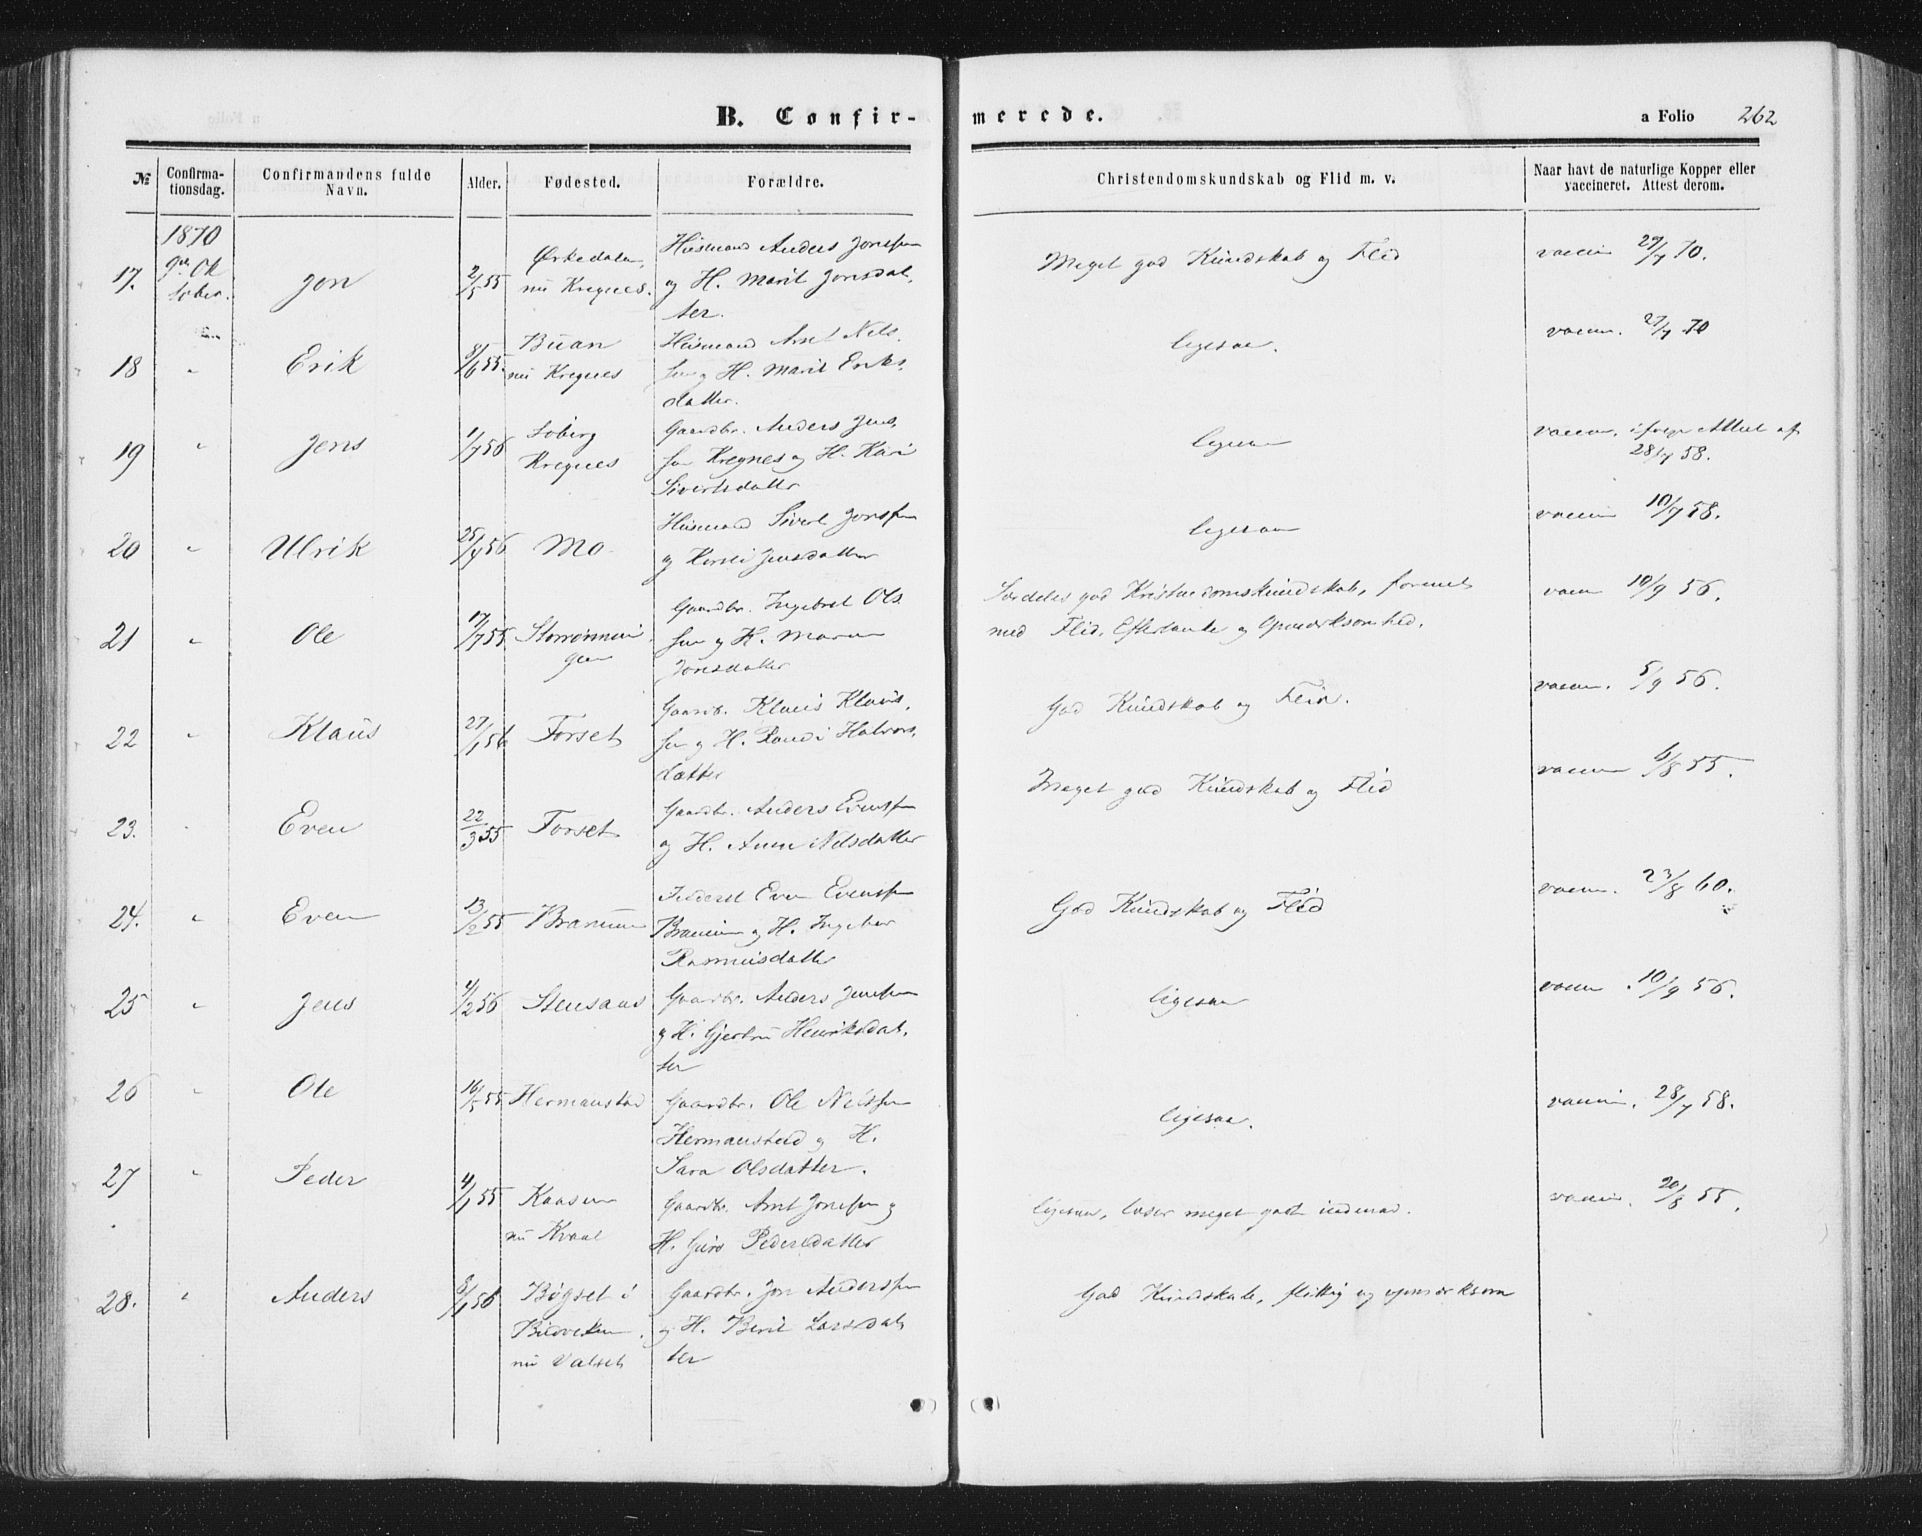 B. Confirmerede.
a Folio 262
№ Confirmationsdag. Confirmandens fulde Navn. Alder. Fødested. Forældre. Christendomskundskab og Flid m. v. Naar havt de naturlige Kopper eller vaccineret. Attest derom.
1870
17. 9de Oktober. Jon 2/5 55 Ørkedalen, nu Kregnes. Husmand Anders Jonssen og H. Marit Jonsdatter. Meget god Kundskab og Flid vaccin 29/7 70.
18 " Erik 8/6 55. Buan nu Kregnes Husmand Arnt Nelssen og H. Marit Eriksdatter. ligesaa. vaccin. 27/7 70
19 " Jens 1/7 56 Søberg Kregnes Gaardbr. Anders Jenssen Kregnes og H. Kari Sivertsdatter ligesaa vaccin. ifølge Attest af 28/7 58.
20 " Ulrik 25/4 56 Mo Husmand Sivert Jonssen og Kirsti Jensdatter ligesaa vaccin 10/7 58.
21 " Ole 17/7 55 Størrønningen Gaardbr. Ingebret Olssen og H. Maren Jonsdatter Særdeles god Kristendomskundskab, forenet med Flid, Eftertanke og Opmærksomhed. vaccin 10/9 56.
22 " Klaus 27/1 56 Forset Gaardb. Klaus Klaussen og H. Randi Halvorsdatter God Kundskab og Flid. vaccin. 5/9 56.
23. " Even 22/3 55 Forset Gaardbr. Anders Evenssen og H. Anne Nelsdatter Meget god Kundskab og Flid vaccin 6/8 55.
24. " Even 13/2 55 Bramun Inderst Even Evenssen Bramun og H. Ingebor Rasmusdatter God Kundskab og Flid vaccin. 23/8 60.
25 " Jens 4/2 56 Stensaas Gaardbr. Anders Jenssen og H. Gjertru Henriksdatter ligesaa vaccin. 10/9 56.
26 " Ole 16/5 55 Hermanstad Gaardbr. Ole Nelssen Hermanstad og H. Sara Olsdatter. ligesaa. vaccin. 28/7 58.
27 " Peder 4/1 55 Kaasen nu Kvaal Gaardbr. Arnt Jonssen og H. Guro Pedersdatter ligesaa, læser meget godt indenad. vaccin. 20/8 55.
28. " Anders 8/1 56 Bøgset i Budviken, nu Valset Gaardbr. Jon Anderssen og H. Berit Larsdatter God Kundskab, flittig og opmærksom